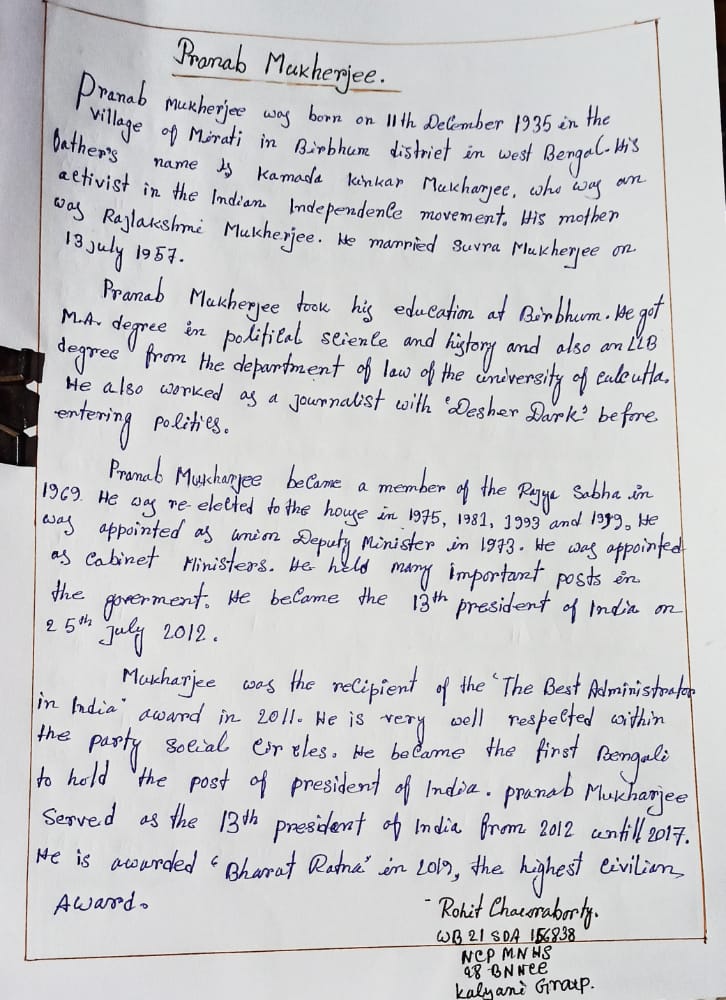 Pranab Mukherjee.
Pranab Mukherjee was born on 11th December 1935 in the
village of Mirati in Birbhum district in west Bengal. His
father's name is Kamada kinkar Mukharjee, who was an
activist in the Indian Independence movement. His mother
was Rajlakshmi Mukherjee. He married Suvra Mukherjee on
13 july 1957.
Pranab Mukherjee took his education at Birbhum. He got
M.A. degree in political science and history and also an LLB
degree from the department of law of the university of calcutta.
He also worked as a journalist with 'Desher Dark' before
entering politics.
Pranab Mukharjee became a member of the Rajya Sabha in
1969. He was re-elected to the house in 1975, 1981, 1993 and 1999. He
was appointed as union Deputy Minister in 1973. He was appointed
as Cabinet Ministers. He held many important posts in
the goverment. He became the 13th president of India on
25th July 2012.
Mukharjee was the recipient of the 'The Best Administrator
in India' award in 2011. He is very well respected within
the party social circles. He became the first Bengali
to hold the post of president of India. pranab Mukharjee
Served as the 13th president of India from 2012 untill 2017.
He is awarded 'Bharat Ratna' in 2019, the highest civilian
Award.
- Rohit Chacraborty.
WB 21 SDA 156838
NCP MNHS
48 BN NCC
Kalyani Group.